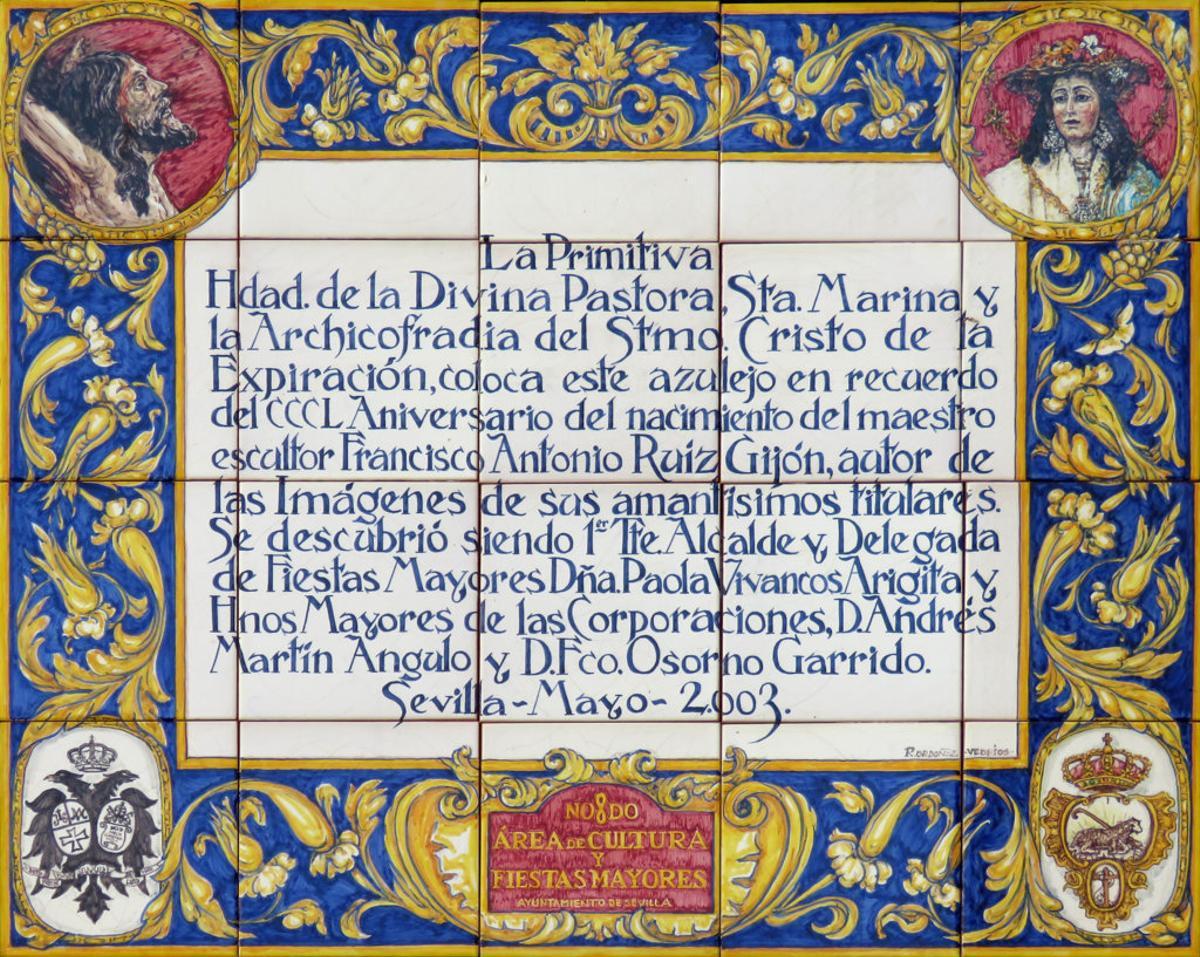 La Primitiva
Hdad. de la Divina Pastora, Sta. Marina y
la Archicofradia del Stmo. Cristo de la
Expiración, coloca este azulejo en recuerdo
del CCCL Aniversario del nacimiento del maestro
escultor Francisco Antonio Ruiz Gijón, autor de
las Imágenes de sus amantísimos titulares.
Se descubrió siendo 1er Tte. Alcalde y Delegada
de Fiestas Mayores Dña. Paola Vivancos Arigita y
Hnos Mayores de las Corporaciones, D. Andrés
Martín Angulo y D. Fco. Osorno Garrido.
Sevilla - Mayo - 2.003.
NO8DO
ÁREA DE CULTURA
Y
FIESTAS MAYORES
AYUNTAMIENTO DE SEVILLA